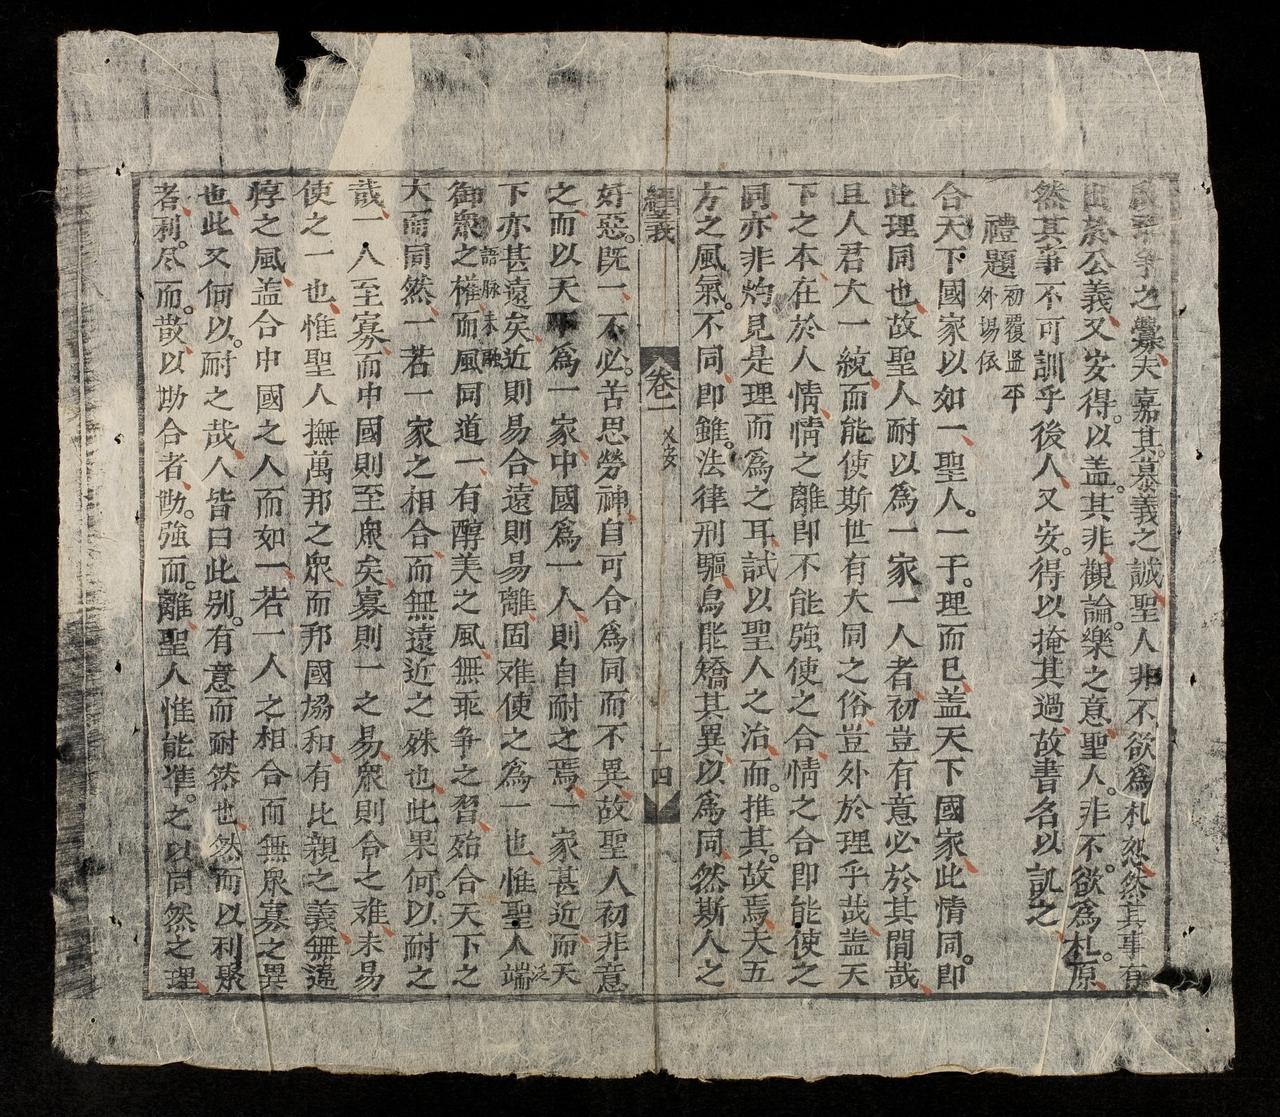 啟爭之釁夫嘉其慕義之誠聖人非不欲為札恕然其事有
出於公義又安得以盖其非觀論樂之意聖人非不欲為札原
然其事不可訓乎後人又安得以掩其過故書名以訊之
禮題
初覆盜平
外場依
合天下國家以如一聖人一于理而已盖天下國家此情同即
此理同也故聖人耐以為一家一人者初豈有意必於其間哉
且人君大一統而能使斯世有大同之俗豈外於理乎哉盖天
下之本在於人情情之離即不能強使之合情之合即能使之
同亦非灼見是理而為之耳試以聖人之治而推其故焉夫五
方之風氣不同即雖法律刑驅鳥能矯其異以為同然斯人之
經義
卷一
文安
十四
好惡既一不必苦思勞神自可合為同而不異故聖人初非意
之而以天下為一家中國為一人則自耐之焉一家甚近而天
下亦甚遠矣近則易合遠則易離固难使之為一也惟聖人端
泛
御衆之權而風同道一有醇美之風無乖爭之習殆合天下之
語脉未融
大而同然一若一家之相合而無遠近之殊也此果何以耐之
哉一人至寡而中國則至衆矣寡則一之易衆則合之难未易
使之一也惟聖人撫萬邦之衆而邦國協和有比親之義無違
悖之風盖合中國之人而如一若一人之相合而無衆寡之異
也此又何以耐之哉人皆曰此别有意而耐然也然而以利聚
者利尽而散以勘合者勘強而離聖人惟能準之以同然之理